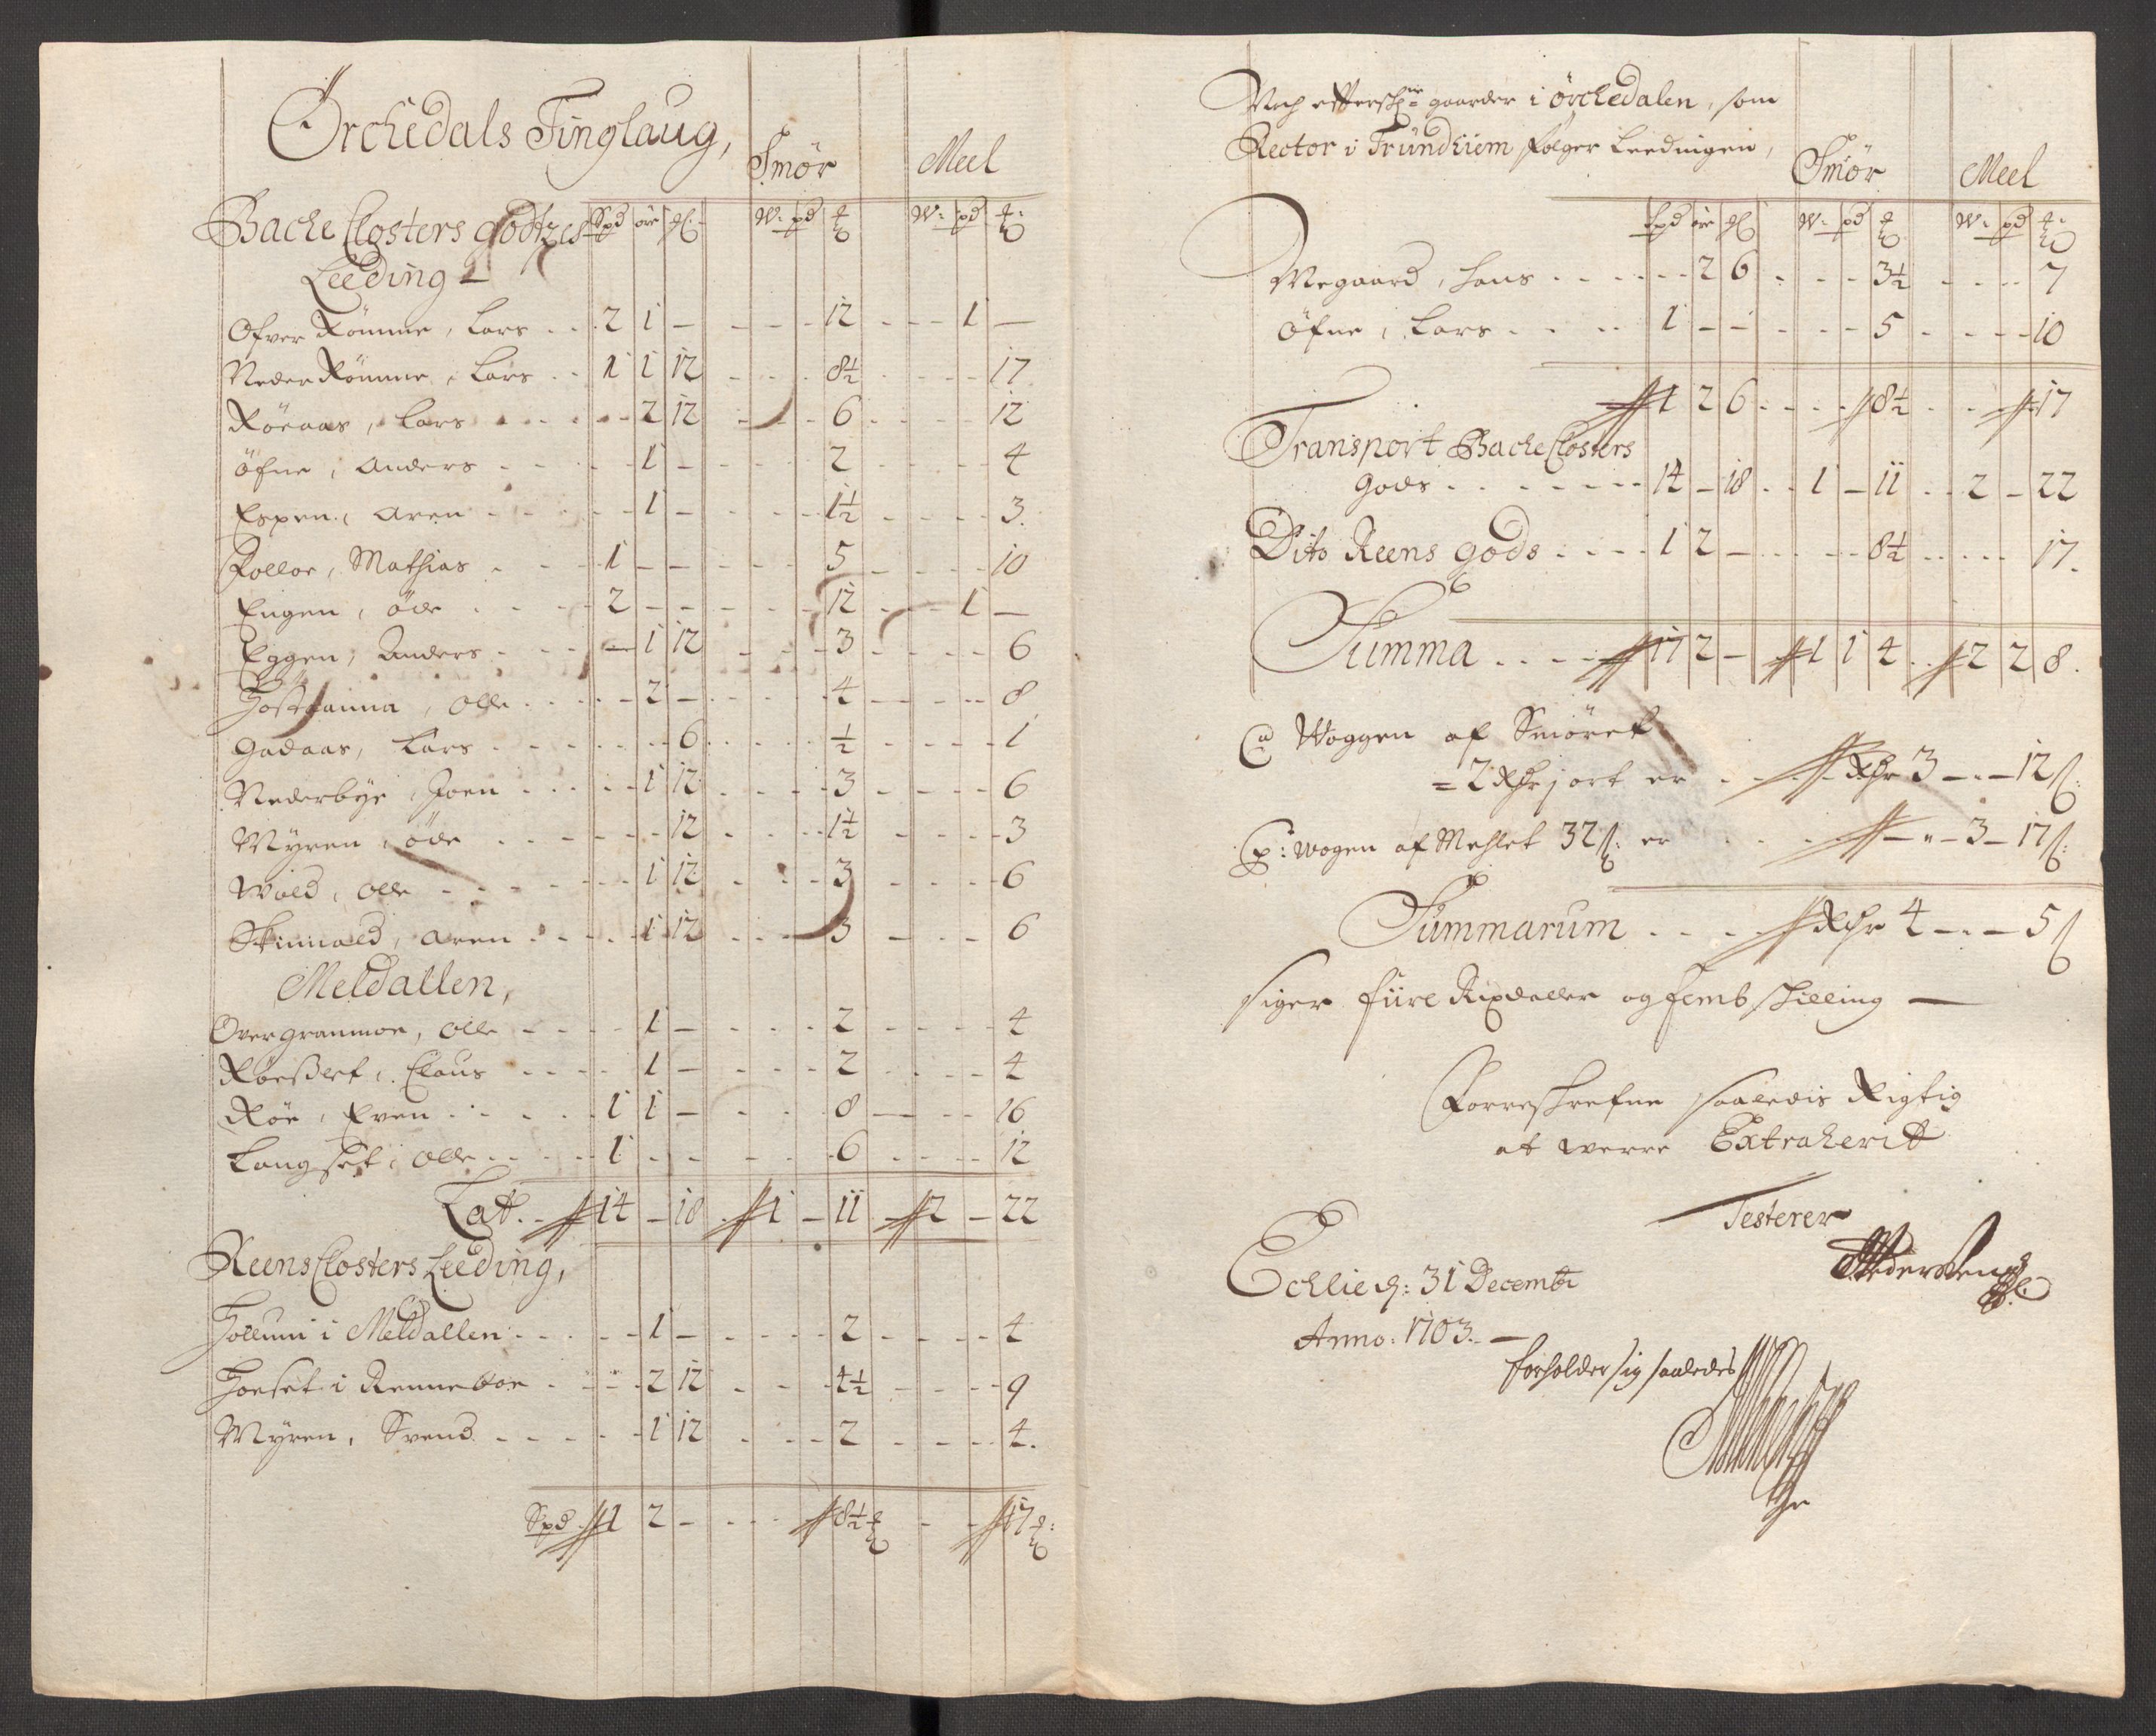 Örchedals Tinglaug,
Smör Meel
Bache Closters Godtzes Spd öre W: pd W: pd
Leeding
Ofver Römme, Lars - - 2 1 - - - - 12 - - - 1 -
Neder Römme, Lars - - 1 1 12 - - - 8½ - - - - 17
Röeaas, Lars - - - - 2 12 - - - 6 - - - - 12
Öfne, Anders - - - - 1 - - - - 2 - - - - 4
Espen, Aren - - - - 1 - - - - 1½ - - - - 3.
Folloe, Mathias - - - 1 - - - - - 5 - - - - 10
Engen, öde - - - - 2 - - - - - 12 - - - 1 -
Eggen, Anders - - - - 1 12 - - - 3 - - - - 6
Olle - - - - 2 - - - - 4 - - - - 8
Gadaas, Lars - - - - - 6 - - - ½ - - - - 1
Nederbye, Joen - - - - 1 12 - - - 3 - - - - 6
Myren, öde - - - - - 12 - - - 1½ - - - - 3
Wald, Olle - - - - - 1 12 - - - 3 - - - - 6
Skinnald, Aren - - - - 1 12 - - - 3 - - - 6
Meldallen,
Over Granmoe, Olle - - - - 1 - - - - 2 - - - - 4
Claus - - - - 1 - - - - 2 - - - - 4
Röe, Even - - - - 1 1 - - - - 8 - - - 16
Langset, Olle - - - - 1 - - - - - 6 - - - - 12
Lat. - 14 - 18 - 1 - 11 - 2 - 22
Reens Closters Leeding,
i Meldallen - - - - 1 - - - - 2 - - - - 4
Hoeset i Renneboe - - - 2 12 - - - 4½ - - - - 9
Myren, Svend - - - - 1 12 - - - 2 - - - - 4.
Spd 1 2 - - - - 8½ - - 17
gaarder i örchedalen, som
Rector i Trundhiem følger Leedingen,
Smör Meel
Spd öre W: pd W: pd
Megaard, Hans - - - - - 2 6 - - - 3½ - - - - 7
Öfne, Lars - - - - 1 - - - - - 5 - - - - 10
1 2 6 - - - 8½ - - 17
Transport Bache Closters
Gods - - - - - - 14 - 18 - - 1 - 11 - - 2 - 22
Dito Reens gods - - - - 1 2 - - - - - 8½ - - - - 17.
Summa - - - - 17 2 - 1 1 4 - - 2 2 8.
Woggen af Smöret
= 2 Rdr j ort er - - - - Rdr 3 - - - 12 ß:
wogen af Mehlet 32 ß: er - - - - " - 3 - 17 ß:
Summarum - - - - Rdr 4 - - - 5 ß
siger fiire Rixdaller og femb skilling -
Forreskrefne saaledis Rigtig
at werre Extraherit
Testerer
Echlie d: 31 Decembr
Anno: 1703. -
forholder sig saaledes